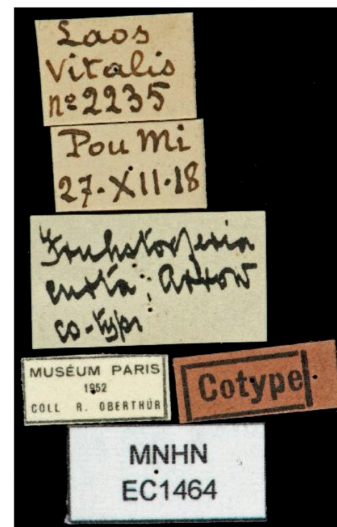 Laos
Vitalis
nº 2235
Pou Mi
27-XII-18
Fruhstorferia
curta; Arrow
co-type
MUSÉUM PARIS
1952
COLL R. OBERTHÜR
Cotype
MNHN
EC1464